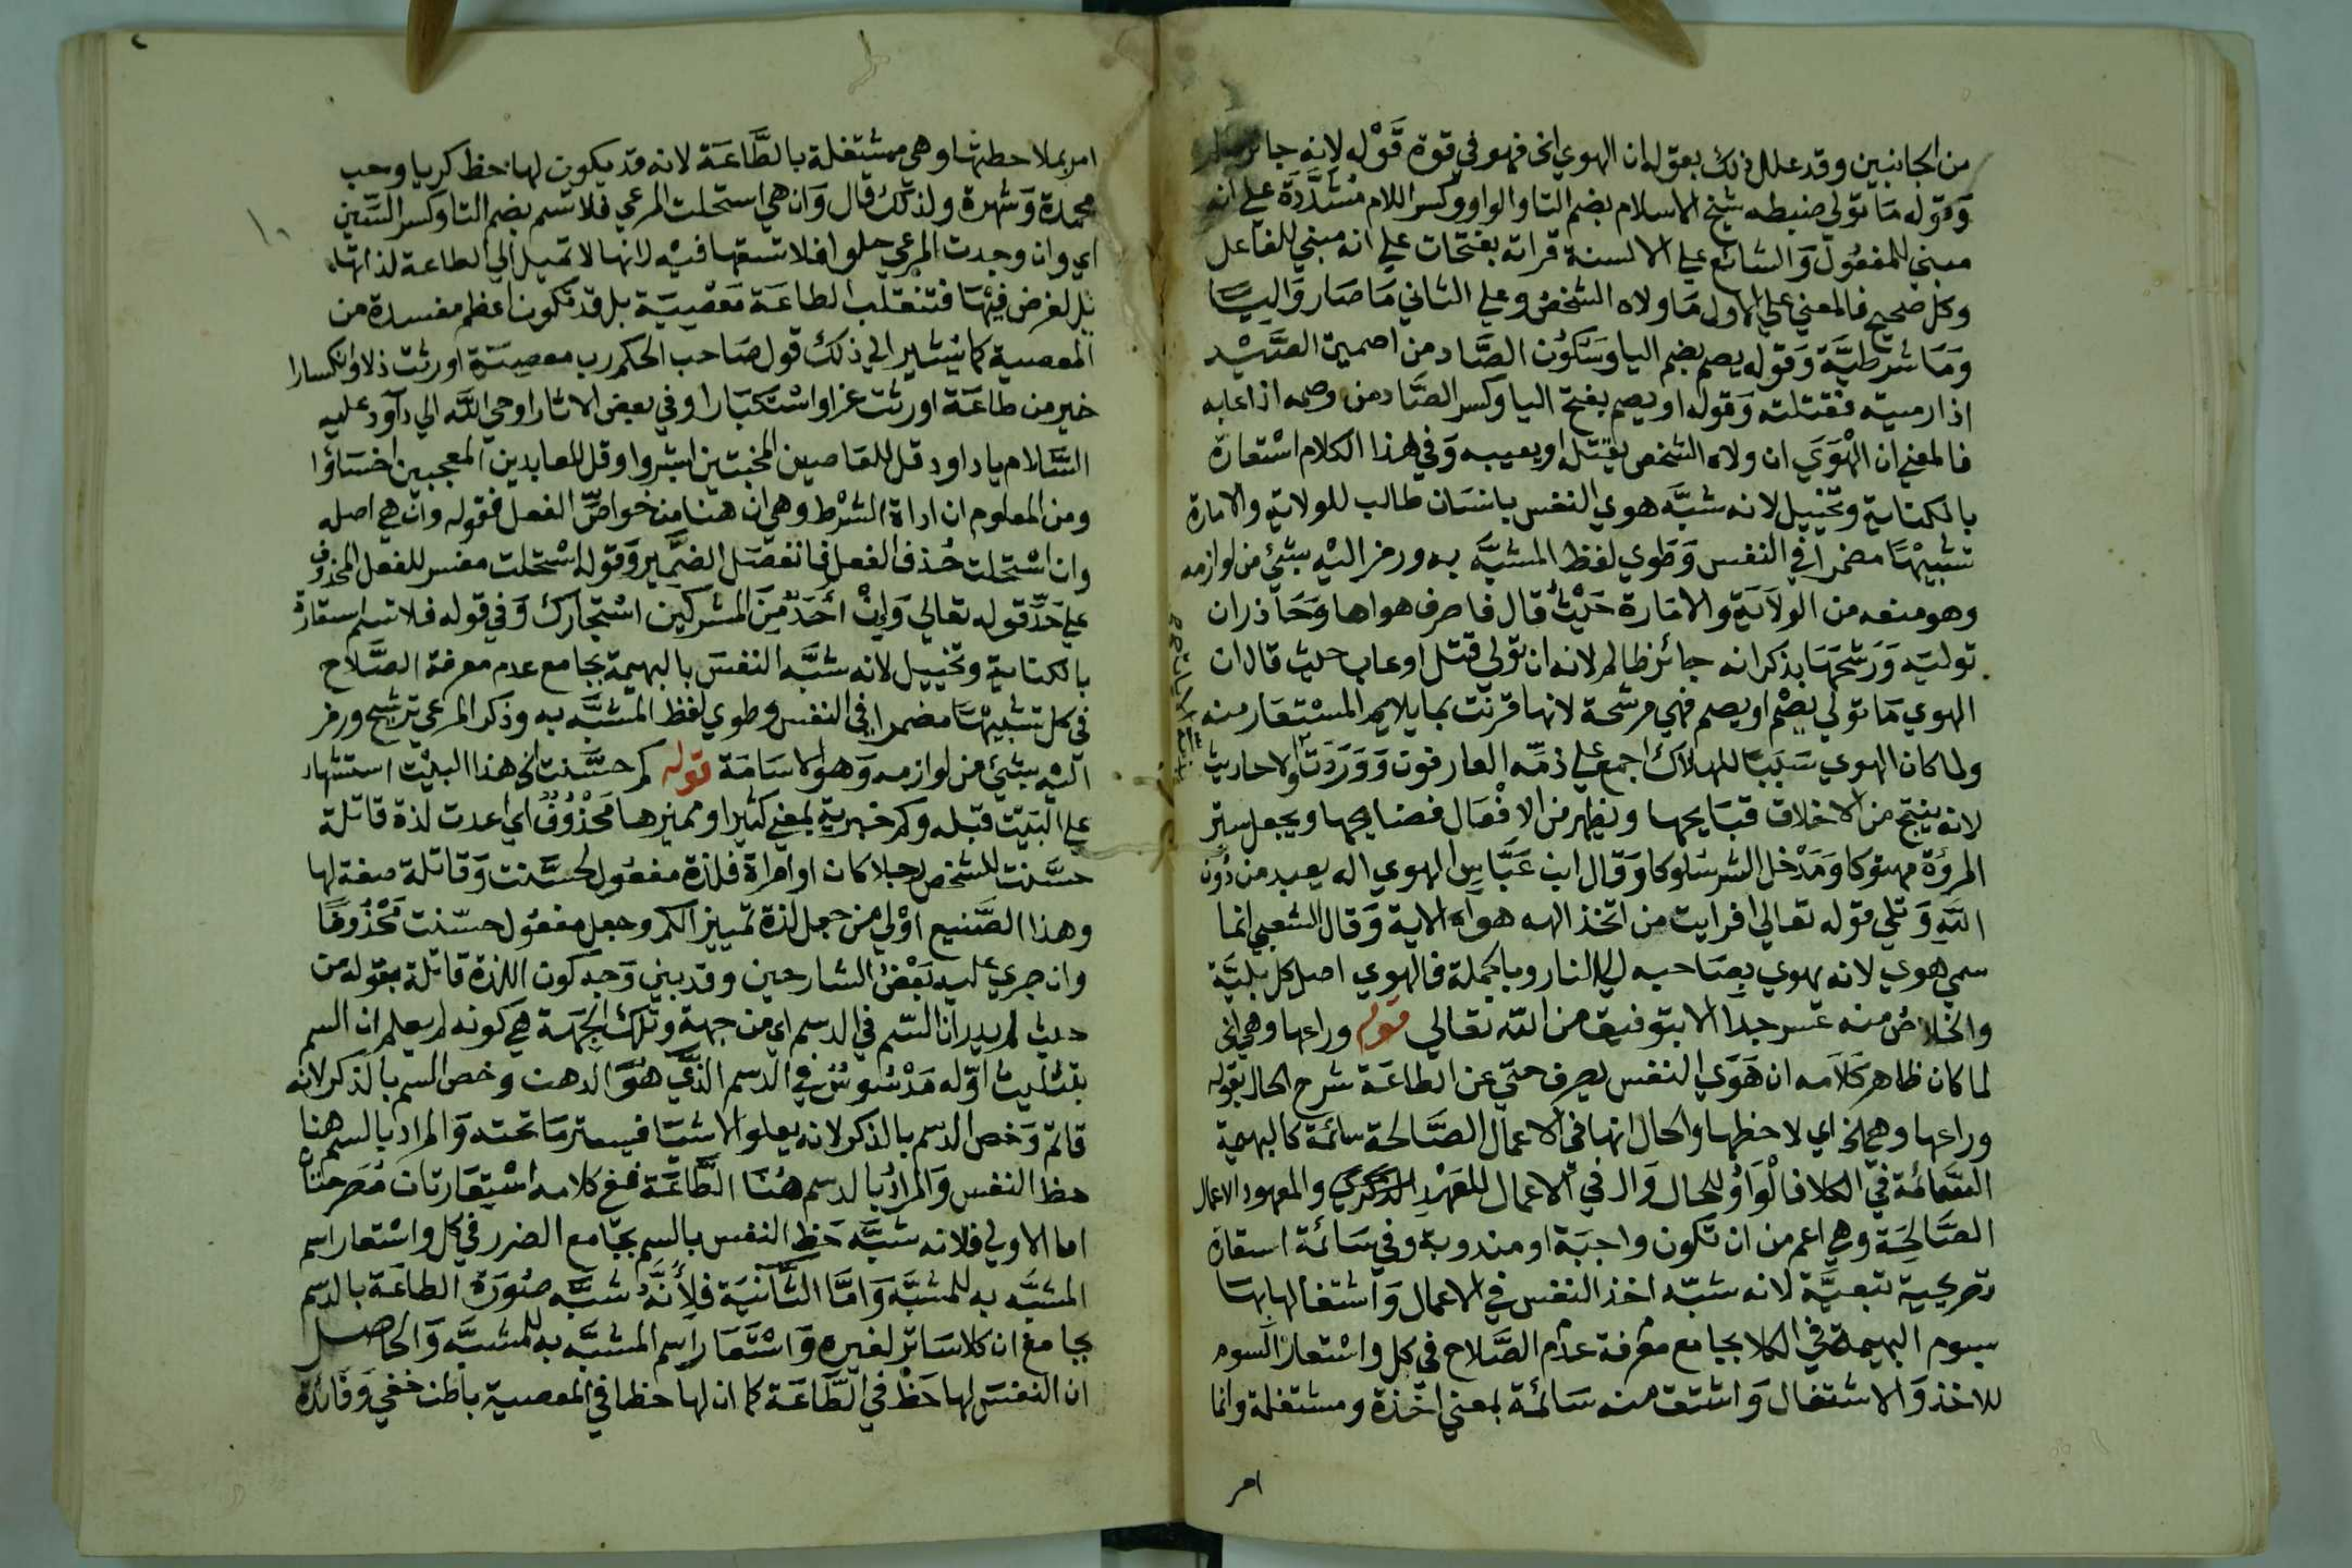 من الجانبين وقد علل ذلك بقوله ان الهوي الخ فهو في قوة قَوْله لانه جائر
وَقوله مَا تولي ضبطه شيخ الاسلام بضم التا والواو وكسر اللام مُشَدَّدَة علي انه
مبني للمفعُول وَالشائع علي الالسنة قراته بفتحات علي انه مبني للفاعل
وكل صحيح فالمعني علي الاول مَا ولاه الشخصُ وعلي الثاني مَا صَار وَاليًا
وَمَا شرطيَّة وَقوله يصم بضم اليا وسَكوُن الصَّاد من اصميت الصَّيْد
اذا رميته فقتلته وَقوله او يصم بفتح اليا وكسر الصَّاد من وصمه اذا عابه
فالمعني ان الْهَوَي ان ولاه الشخص يقتل او يعيبه وَفي هذا الكلام اسْتعارة
بالكناية وتخييل لانه شبَّه هوي النفس بانسَان طالب للولاية والامارة
تشبيهًا مضمرا في النفس وَطوي لفظ المشبَّه به ورمز اليْه بشئ من لوازمه
وهو منعه من الولاَية والامَارة حَيْثُ قال فاصرف هواها وَحَاذر ان
توليَه وَرَشحَهَا بذكر انه جائز ظالم لانه ان تولي قتل او عاب حيث قال ان
الهوي مَا تولي يصْم او يصم فهي مرشحة لانها قرنت بما يلايم المسْتعَار منه
ولما كان الهوي سَبَبًا للهلاَك اجمع علي ذمِّه العارفون وَوَرَدَت الاحاديث
لانه ينتج من الاخلاق قبَايحها ويظهر من الافْعَال فضايحها ويجعل ستر
المروُة مهتوكا وَمَدْخل الشر سَلوكا وَقال ابن عَبَّاس الهوي اله يعبد من دُون
اللَّهِ وَتلي قوله تعالي افرايت من اتخذ الهه هواه الاية وَقال الشعبي انما
سمي هوي لانه يهوي بصَاحبه الي النار وبالجملة فالهوي اصل كل بليَّة
والخلاصُ منه عسر جدا الا بتوفيق من اللّه تعالي قوله وراعها وهي الخ
لما كان ظاهر كَلَامه ان هَوَي النفس يصرف حتي عن الطاعَة شرح الحال بقوله
وراعها وهي الخ اي لاحظها والحال انها في الاعمال الصَّالحة سائمة كالبهيمة
السَّائمة في الكلا فالْوَاوُ للحال وَال في الاعمال للعَهْدِ الذكري والمعهود الاعمال
الصَّالحَة وهي اعم من ان تكون واجبَة او مندوبة وفي سَائمَة استعارة
تصريحية تبعيَّة لانه شبّه اخذ النفس في الاعمال وَاشتغالها بهَا
بسوم البهيمة في الكلا بجامع معرفة عدَم الصَّلاح في كل واسْتعار السوم
للاخذ وَالاشتغال وَاشتق منه سَائمة بمعني اخَذة ومشتغلة وانما
امر
امر بملاحظتها وهي مشتغلة بالطَّاعَة لانه قد يكون لها حظ كريا وحب
محمدة وَشهرة ولذلك قال وَان هي استحلت المرعي فلا تسم بضم التا وكسر السّين
اي وان وجدت المرعي حلوا فلا تسمّها فيْه لانها لا تميل الي الطاعة لذاتها
بل لغرض فيْهَا فتنقلب الطاعَة مَعْصيَة بل قد تكون اعظم مفسدة من
المعصية كما يُشير الي ذلك قول صَاحب الحكم رب معصيَة اورثت ذلا وانكسارا
خير من طاعَة اورثت عزا واسْتكبَارا وفي بعض الاثار اوحي اللَّه الي دَاود عليه
السَّلام يا داود قل للعَاصين المخبتين ابشروا وقل للعابدين المعجبين اخسَاؤا
ومن المعلوم ان اداة الشرْط وهي ان هنا من خواصِّ الفعل فقوله وان هي اصله
وان اسْتحلت حُذف الفعل فانفصَل الضمَّير وَقوله اسْتحلت مفسر للفعل المحذوف
علي حَدِّ قوله تعالي وَانْ أَحَدٌ مِنَ المشركينَ اسْتجارك وَفي قوله فلا تسم استعارة
بالكناية وتخييل لانه شبَّه النفسَ بالبهيمة بجامع عدم معرفة الصَّلاح
في كل تشبيهًا مضمرا في النفس وطوي لفظ المشبَّه به وذكر المرعي ترشيح ورمز
اليْه بشئ من لوازمه وَهو الاسَامَة قوله كم حسَّنت الخ هذا البيْت استشهاد
علي البَيت قبله وكم خبرية بمعني كثيرا ومميزها مَحْذُوُفٌ اي عدت لذة قاتلة
حسَّنت للشخص رجلا كان او امراة فلذة مفعُول لحسَّنت وَقاتلة صفة لها
وهذا الصَّنيع اوْلي من جعل لذة تمييز الكم وجعل مفعُول حسّنت مَحْذُوفًا
وان جري عليه بَعْضُ الشارحين وقد بيَّن وَجه كون اللذة قاتلة بقوله من
حيث لم يدر ان السّم في الدسم اي من جهة وتلك الجهَة هي كونه لم يعلم ان السم
بتثليث اوّله مَدْسُوسٌ في الدسم الَّذي هُوَ الدهن وخص السم بالذكر لانه
قاتم وَخص الدسم بالذكر لانه يعلو الاشيَا فيستر مَا تحته وَالمراد بالسم هنا
حظ النفس وَالمرادُ بالدسم هُنَا الطَّاعَة ففي كلامه اسْتعَارتان مُصَرحتان
اما الاولي فلانه شبَّه حَظ النفس بالسم بجَامع الضرر في كل واسْتعار اسم
المشبَّه به للمشبَّه وَامَّا الثَّانيَة فَلِأَنَّهُ شبَّه صُوُرَة الطاعَة بالدسم
بجامع ان كلا سَاتر لغيره وَاسْتَعَار اسم المشبَّه به للمشبَّه وَالحاصل
ان النفسَ لها حَظ في الطَّاعَة كما ان لها حظا في المعصية باطن خفي وَفائدة